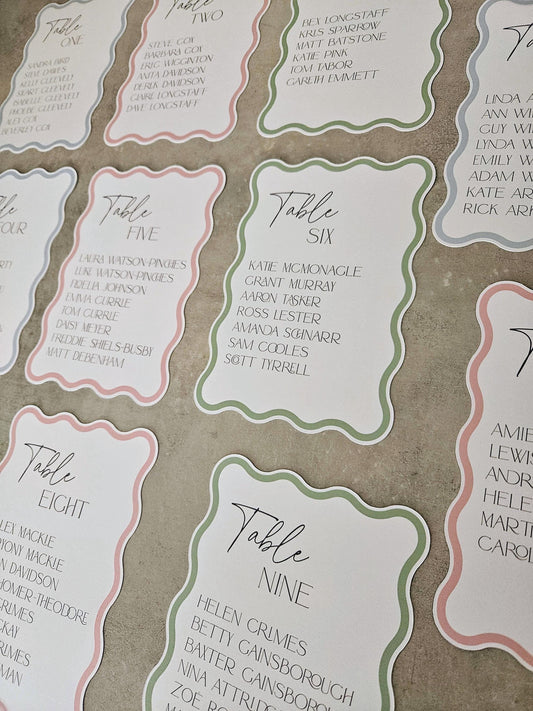 Table
ONE
SANDRA BIRD
STEVE DAVIES
KELLY CLEEVELY
STUART CLEEVELY
ISABELLE CLEEVELY
PHOEBE CLEEVELY
ALEX COX
BEVERLEY COX
Table
TWO
STEVE COX
BARBARA COX
ERIC WIGGINTON
ANITA DAVIDSON
DEREK DAVIDSON
CLAIRE LONGSTAFF
DAVE LONGSTAFF
BEX LONGSTAFF
KRIS SPARROW
MATT BATSTONE
KATIE PINK
TOM TABOR
GARETH EMMETT
LINDA
ANN WI
GUY WI
LYNDA W
EMILY W
ADAM W
KATE AR
RICK ARK
Table
FIVE
LAURA WATSON-PINCHES
LUKE WATSON-PINCHES
AMELIA JOHNSON
EMMA CURRIE
TOM CURRIE
DAISY MEYER
FREDDIE SHIELS-BUSBY
MATT DEBENHAM
Table
SIX
KATIE MCMONAGLE
GRANT MURRAY
AARON TASKER
ROSS LESTER
AMANDA SCHNARR
SAM COOLES
SCOTT TYRRELL
AMIE
LEWIS
ANDR
HELE
MARTI
CAROL
Table
EIGHT
LEX MACKIE
YONY MACKIE
N DAVIDSON
HOMER-THEODORE
GRIMES
CKAY
GRIMES
MAN
Table
NINE
HELEN GRIMES
BETTY GAINSBOROUGH
BAXTER GAINSBOROUGH
NINA ATTRIDG
ZOE RO